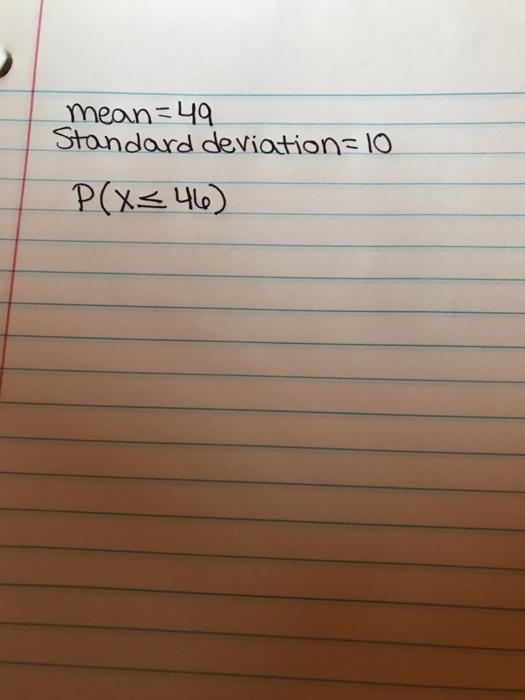 mean=49
Standard deviation=10
P(X≤46)